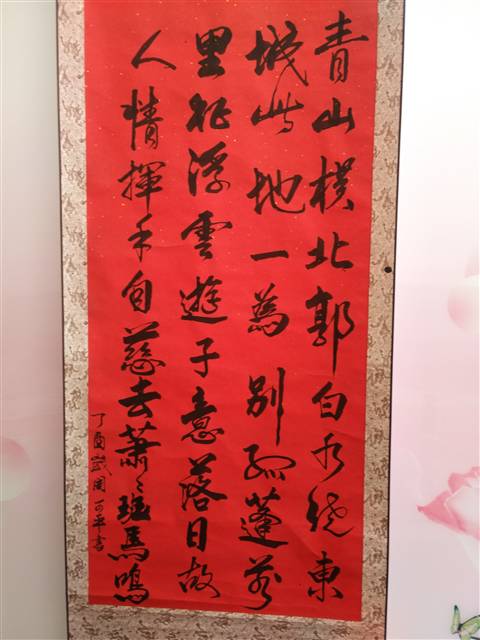 青山橫北郭白水繞東
城此地一為別孤蓬萬
里征浮雲遊子意落日故
人情揮手自慈去蕭々班馬鳴
丁酉歲周可平書